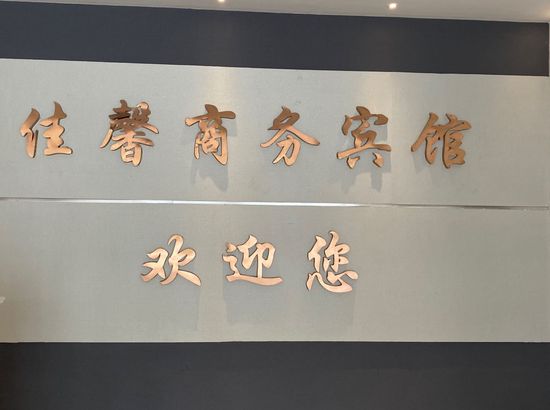 佳馨商务宾馆
欢迎您